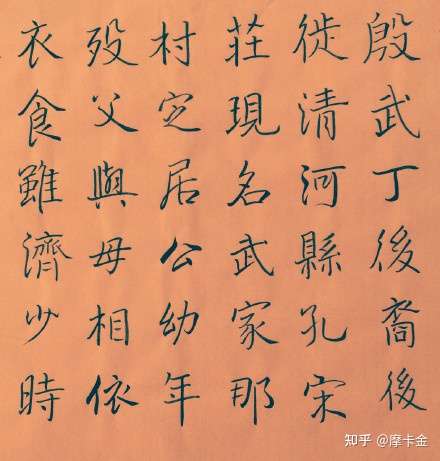 殷武丁後裔後
徙清河縣孔宋
莊現名武家那
村定居公幼年
歿父與母相依
衣食雖濟少時
知乎 @摩卡金